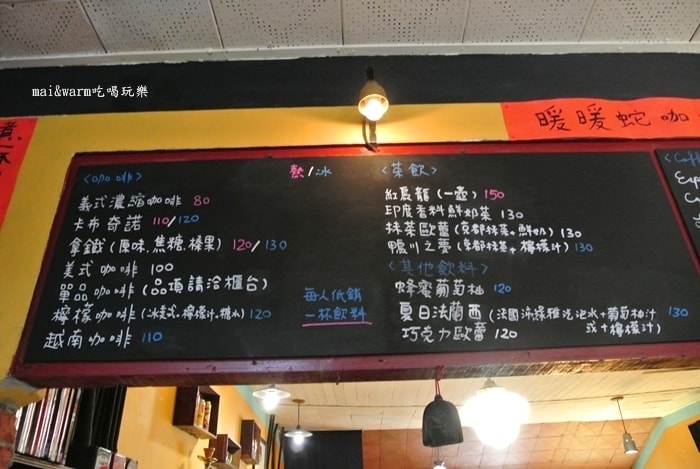 mai&warm吃喝玩樂
暖暖蛇咖
<咖啡>
熱/冰
義式濃縮咖啡 80
卡布奇諾 110/120
拿鐵(原味.焦糖.榛果) 120/130
美式咖啡 100
單品咖啡(品項請洽櫃台)
檸檬咖啡(冰美式.檸檬汁.糖水) 120
越南咖啡 110
每人低銷
一杯飲料
<茶飲>
紅烏龍(一壺) 150
印度香料鮮奶茶 130
抹茶歐蕾(京都抹茶+鮮奶) 130
鴨川之夢(京都抹茶+檸檬汁) 130
<其他飲料>
蜂蜜葡萄柚 120
夏日法蘭西(法國沛綠雅汽泡水+葡萄柚汁 130
或+檸檬汁)
巧克力歐蕾 120